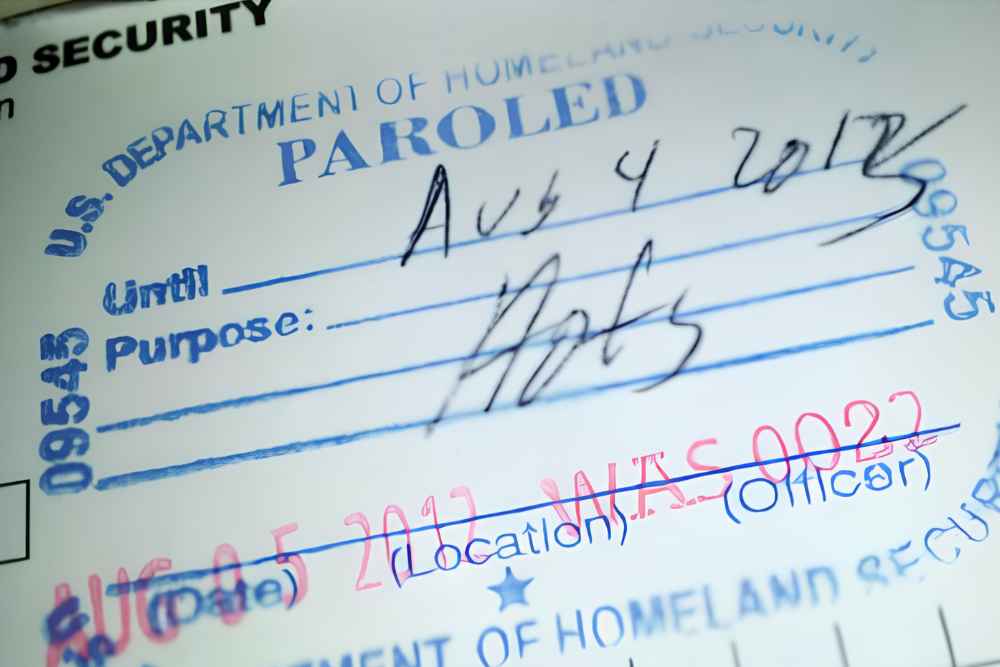 D SECURITY
n
U.S. DEPARTMENT OF HOMELAND SECURITY
PAROLED
Until Aug 4 2013
Purpose:
09545
09545
AUG 05 2012 WAS 0022
(Date) (Location) (Officer)
MENT OF HOMELAND SECUR